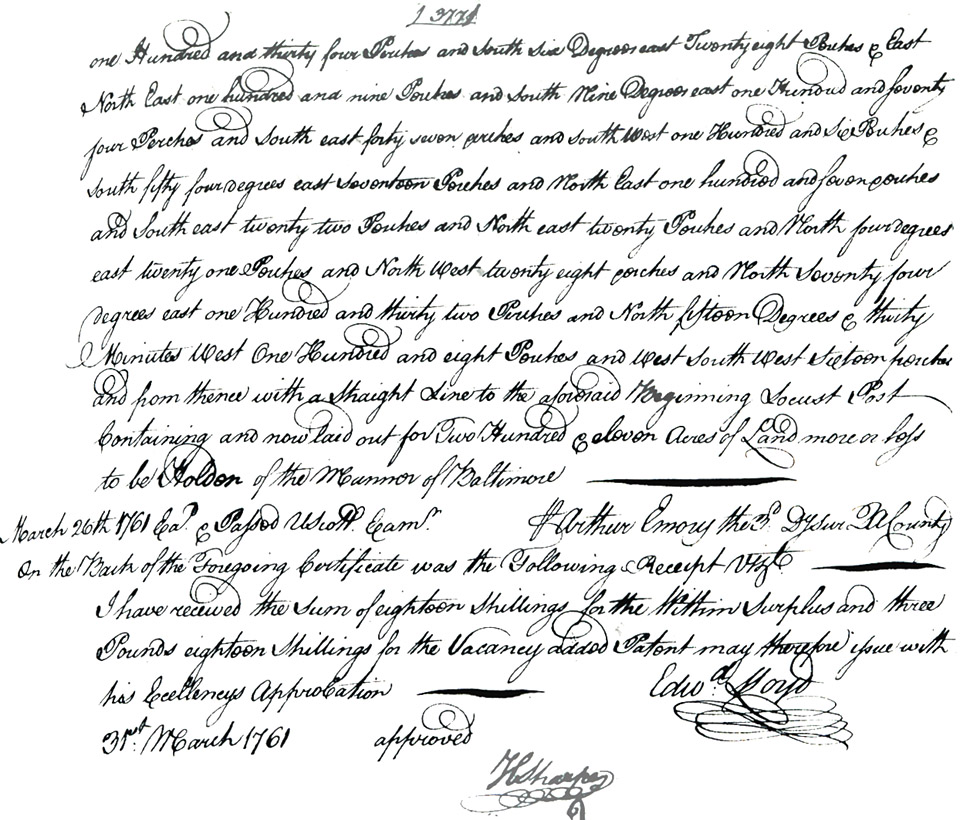 377
one Hundred and thirty four Perches and South Six Degrees east Twenty eight Perches & East
North East one hundred and nine Perches and South Nine Degrees east one Hundred and seventy
four Perches and South east forty seven perches and South West one Hundred and Six Perches &
South fifty four degrees east Seventeen Perches and North East one hundred and seven perches
and South east twenty two Perches and North east twenty Perches and North four degrees
east twenty one Perches and North West twenty eight perches and North Seventy four
degrees east one Hundred and thirty two Perches and North fifteen Degrees & thirty
Minutes West One Hundred and eight Perches and West South West Sixteen perches
and from thence with a Straight Line to the aforesaid Beginning Locust Post
Containing and now laid out for Two Hundred & eleven Acres of Land more or less
to be Holden of the Mannor of Baltimore
March 26th 1761 Ea.d & Passed U Scott Exam.r
Arthur Emory the 3.d Dp Sur QA County
On the Back of the Foregoing Certificate was the Following Receipt Vizt
I have received the Sum of eighteen Shillings for the Within Surplus and three
Pounds eighteen Shillings for the Vacancy added Patent may therefore issue with
his Excellencys Approbation
Edw.d Lloyd
31st March 1761 approved
H Sharpe